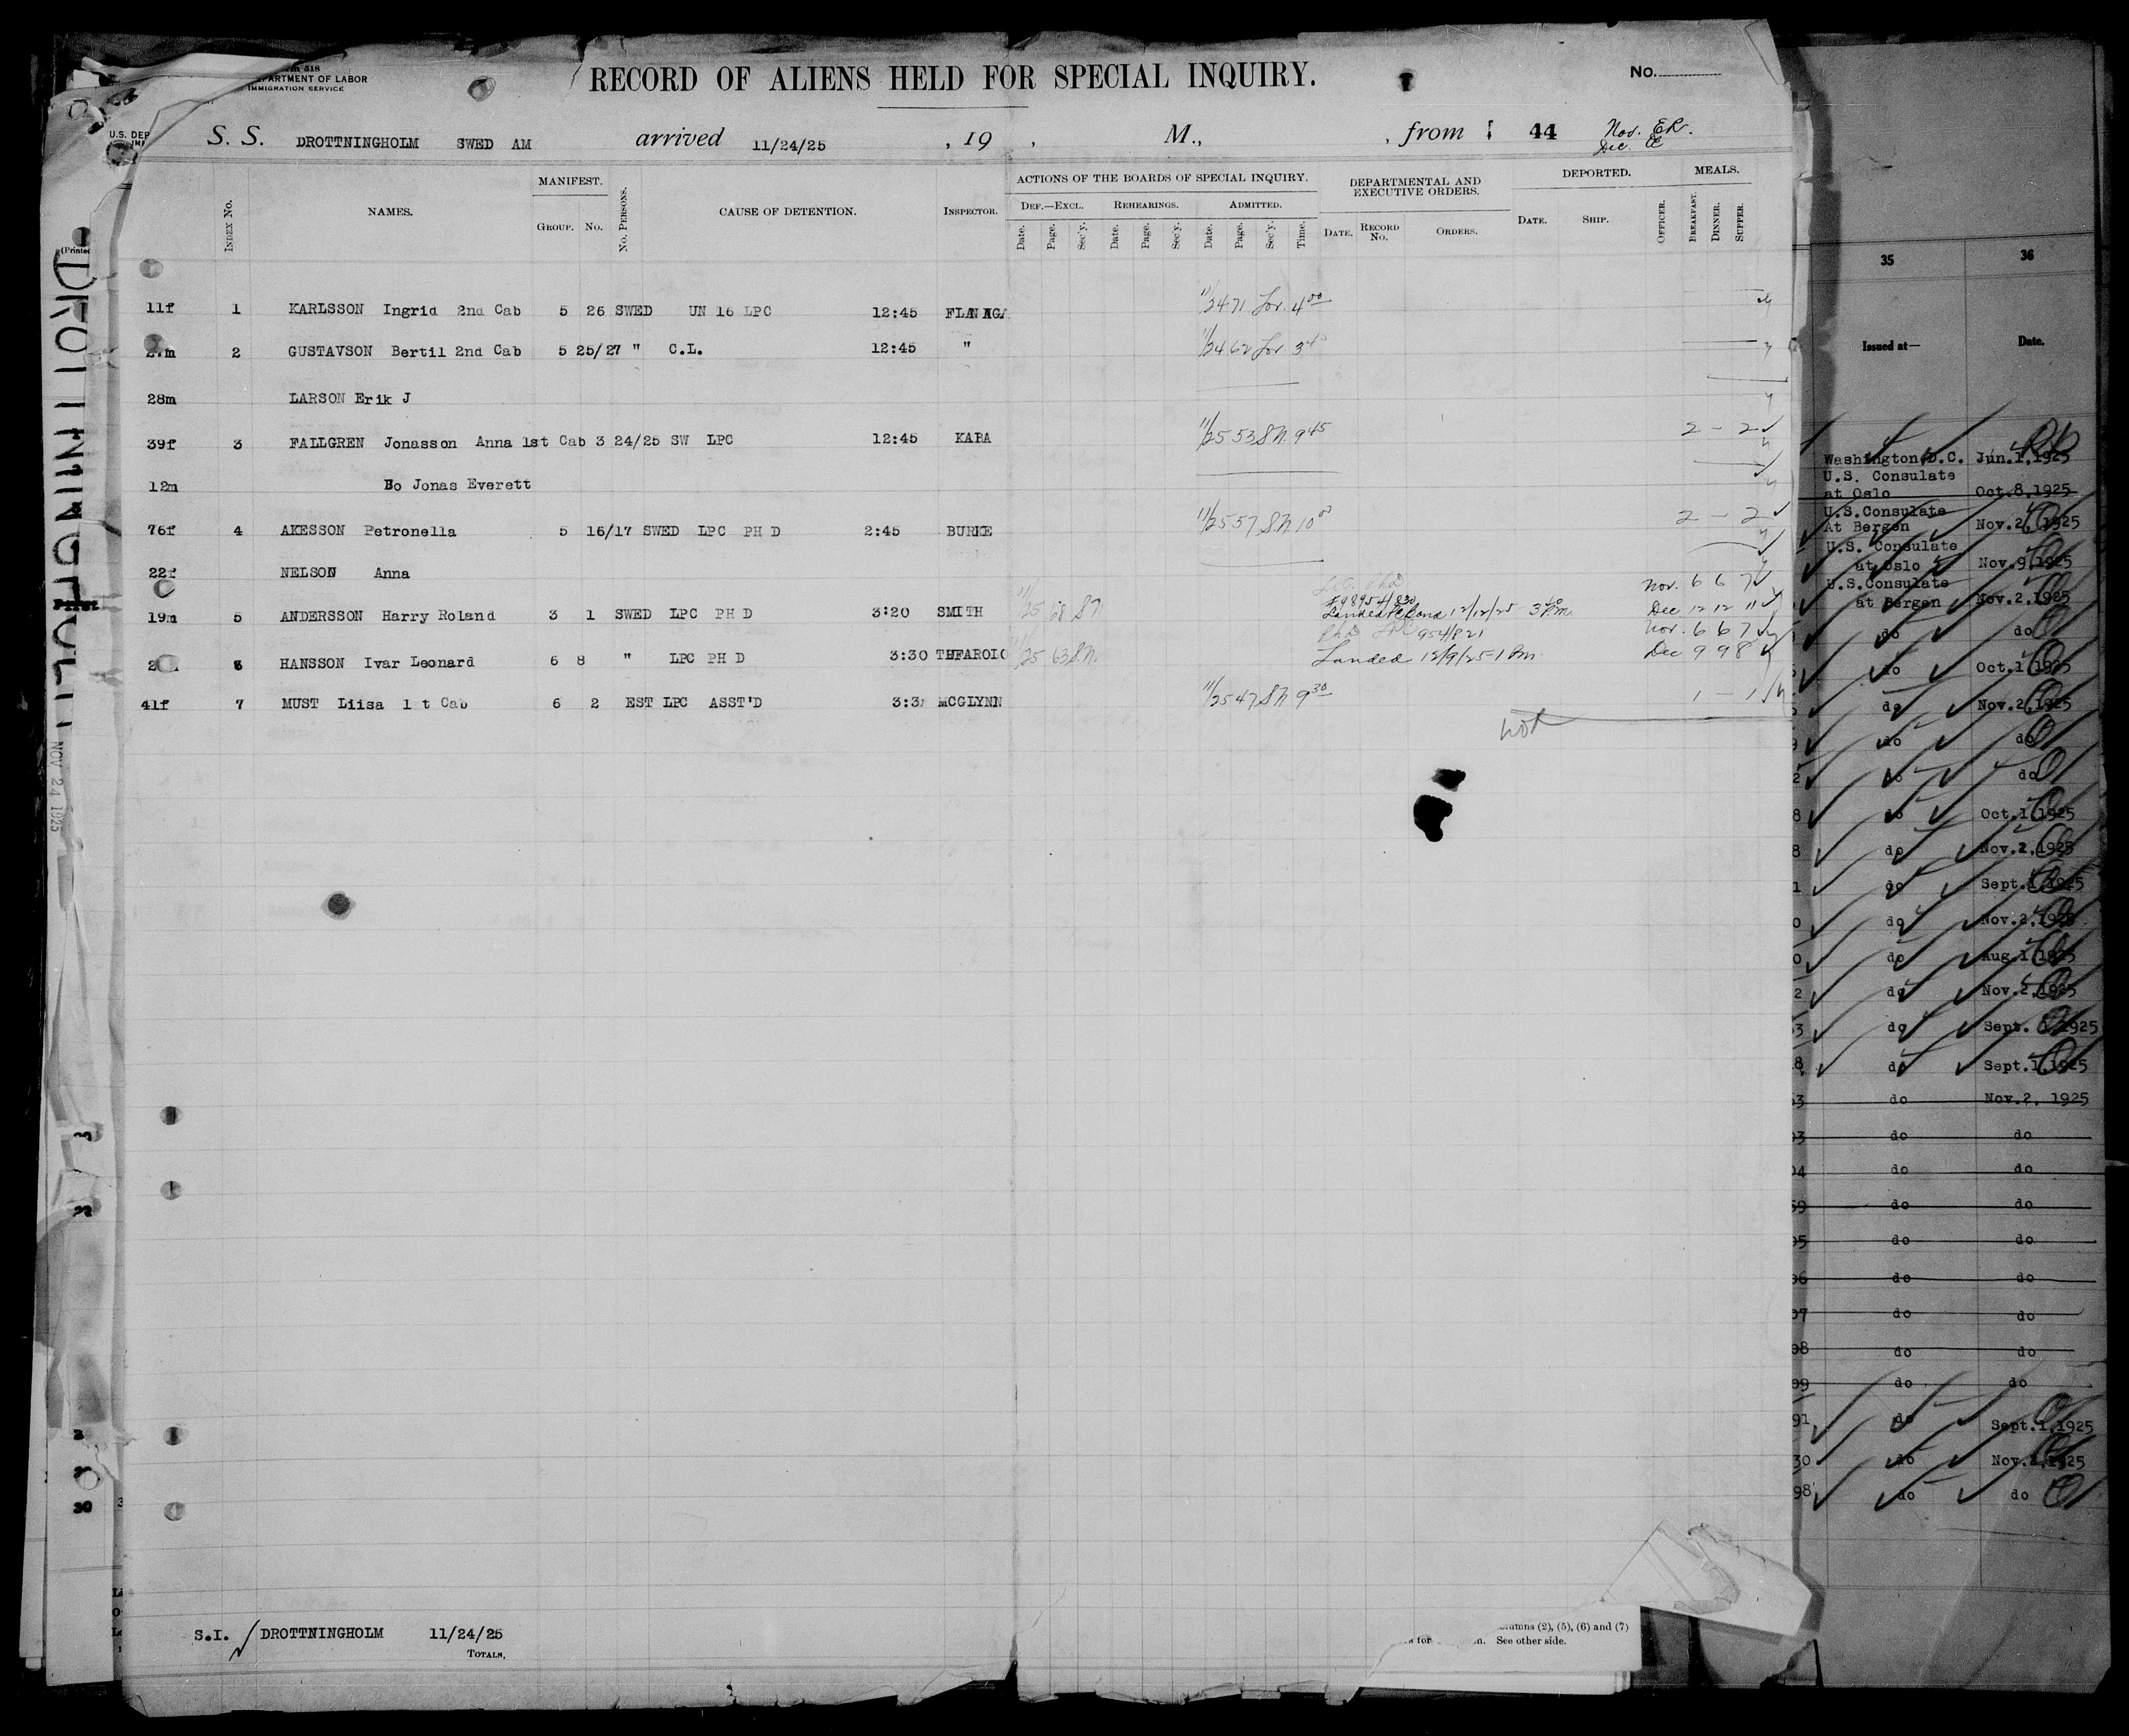 518
DEPARTMENT OF LABOR
IMMIGRATION SERVICE
RECORD OF ALIENS HELD FOR SPECIAL INQUIRY.
No.
U.S. DEP
S. S. DROTTNINGHOLM SWED AM arrived 11/24/25 , 19 , M., , from 44 Nov. ER.
Dec.
INDEX No.
NAMES.
MANIFEST.
GROUP. No.
No. PERSONS.
CAUSE OF DETENTION.
INSPECTOR.
ACTIONS OF THE BOARDS OF SPECIAL INQUIRY.
DEF.—EXCL. REHEARINGS. ADMITTED.
Date. Page. Sec'y. Date. Page. Sec'y. Date. Page. Sec'y. Time.
DEPARTMENTAL AND EXECUTIVE ORDERS.
DATE. RECORD No. ORDERS.
DEPORTED.
DATE. SHIP. OFFICER.
MEALS.
BREAKFAST. DINNER. SUPPER.
11f 1 KARLSSON Ingrid 2nd Cab 5 26 SWED UN 16 LPC 12:45 11/24 71 4 00
2 GUSTAVSON Bertil 2nd Cab 5 25/27 " C.L. 12:45 " 11/24 62
28m LARSON Erik J
39f 3 FALLGREN Jonasson Anna 1st Cab 3 24/25 SW LPC 12:45 KABA 11/25 53 S.N. 9 45 2 - 2
12m Bo Jonas Everett
76f 4 AKESSON Petronella 5 16/17 SWED LPC PH D 2:45 BURKE 11/25 57 S.N. 10 00 2 - 2
22f NELSON Anna
19m 5 ANDERSSON Harry Roland 3 1 SWED LPC PH D 3:20 SMITH 11/25 68 Landed 12/12/25 - 3 P.M. Nov. 6 6 7
Dec 12 12 11
6 HANSSON Ivar Leonard 6 8 " LPC PH D 3:30 11/25 63 S.N. 954/821 Nov. 6 6 7
Landed 12/9/25-1 Pm. Dec 9 9 8
41f 7 MUST Liisa 1 t Cab 6 2 EST LPC ASST'D MCGLYNN 11/25 47 S.N. 9 30 1 - 1
S.I. DROTTNINGHOLM 11/24/25
TOTALS,
(2), (5), (6) and (7)
See other side.
DROTTNINGHOLM
NOV 24 1925
30
35 36
Issued at— Date.
Washington, D.C. Jun.1,1925
U.S. Consulate
at Oslo Oct.8,1925
U.S.Consulate
At Bergen Nov.2,1925
U.S. Consulate
at Oslo Nov.9,1925
U.S.Consulate
at Bergen Nov.2,1925
do do
do Oct.1,1925
do Nov.2,1925
do do
do do
do Oct.1,1925
do Nov.2,1925
do Sept.1,1925
do Nov.2,1925
do Aug.1,1925
do Nov.2,1925
do Sept. 1,1925
do Sept.1,1925
do Nov.2. 1925
do do
do do
do do
do do
do do
do do
do do
do do
do Sept.1,1925
do Nov.2,1925
do do